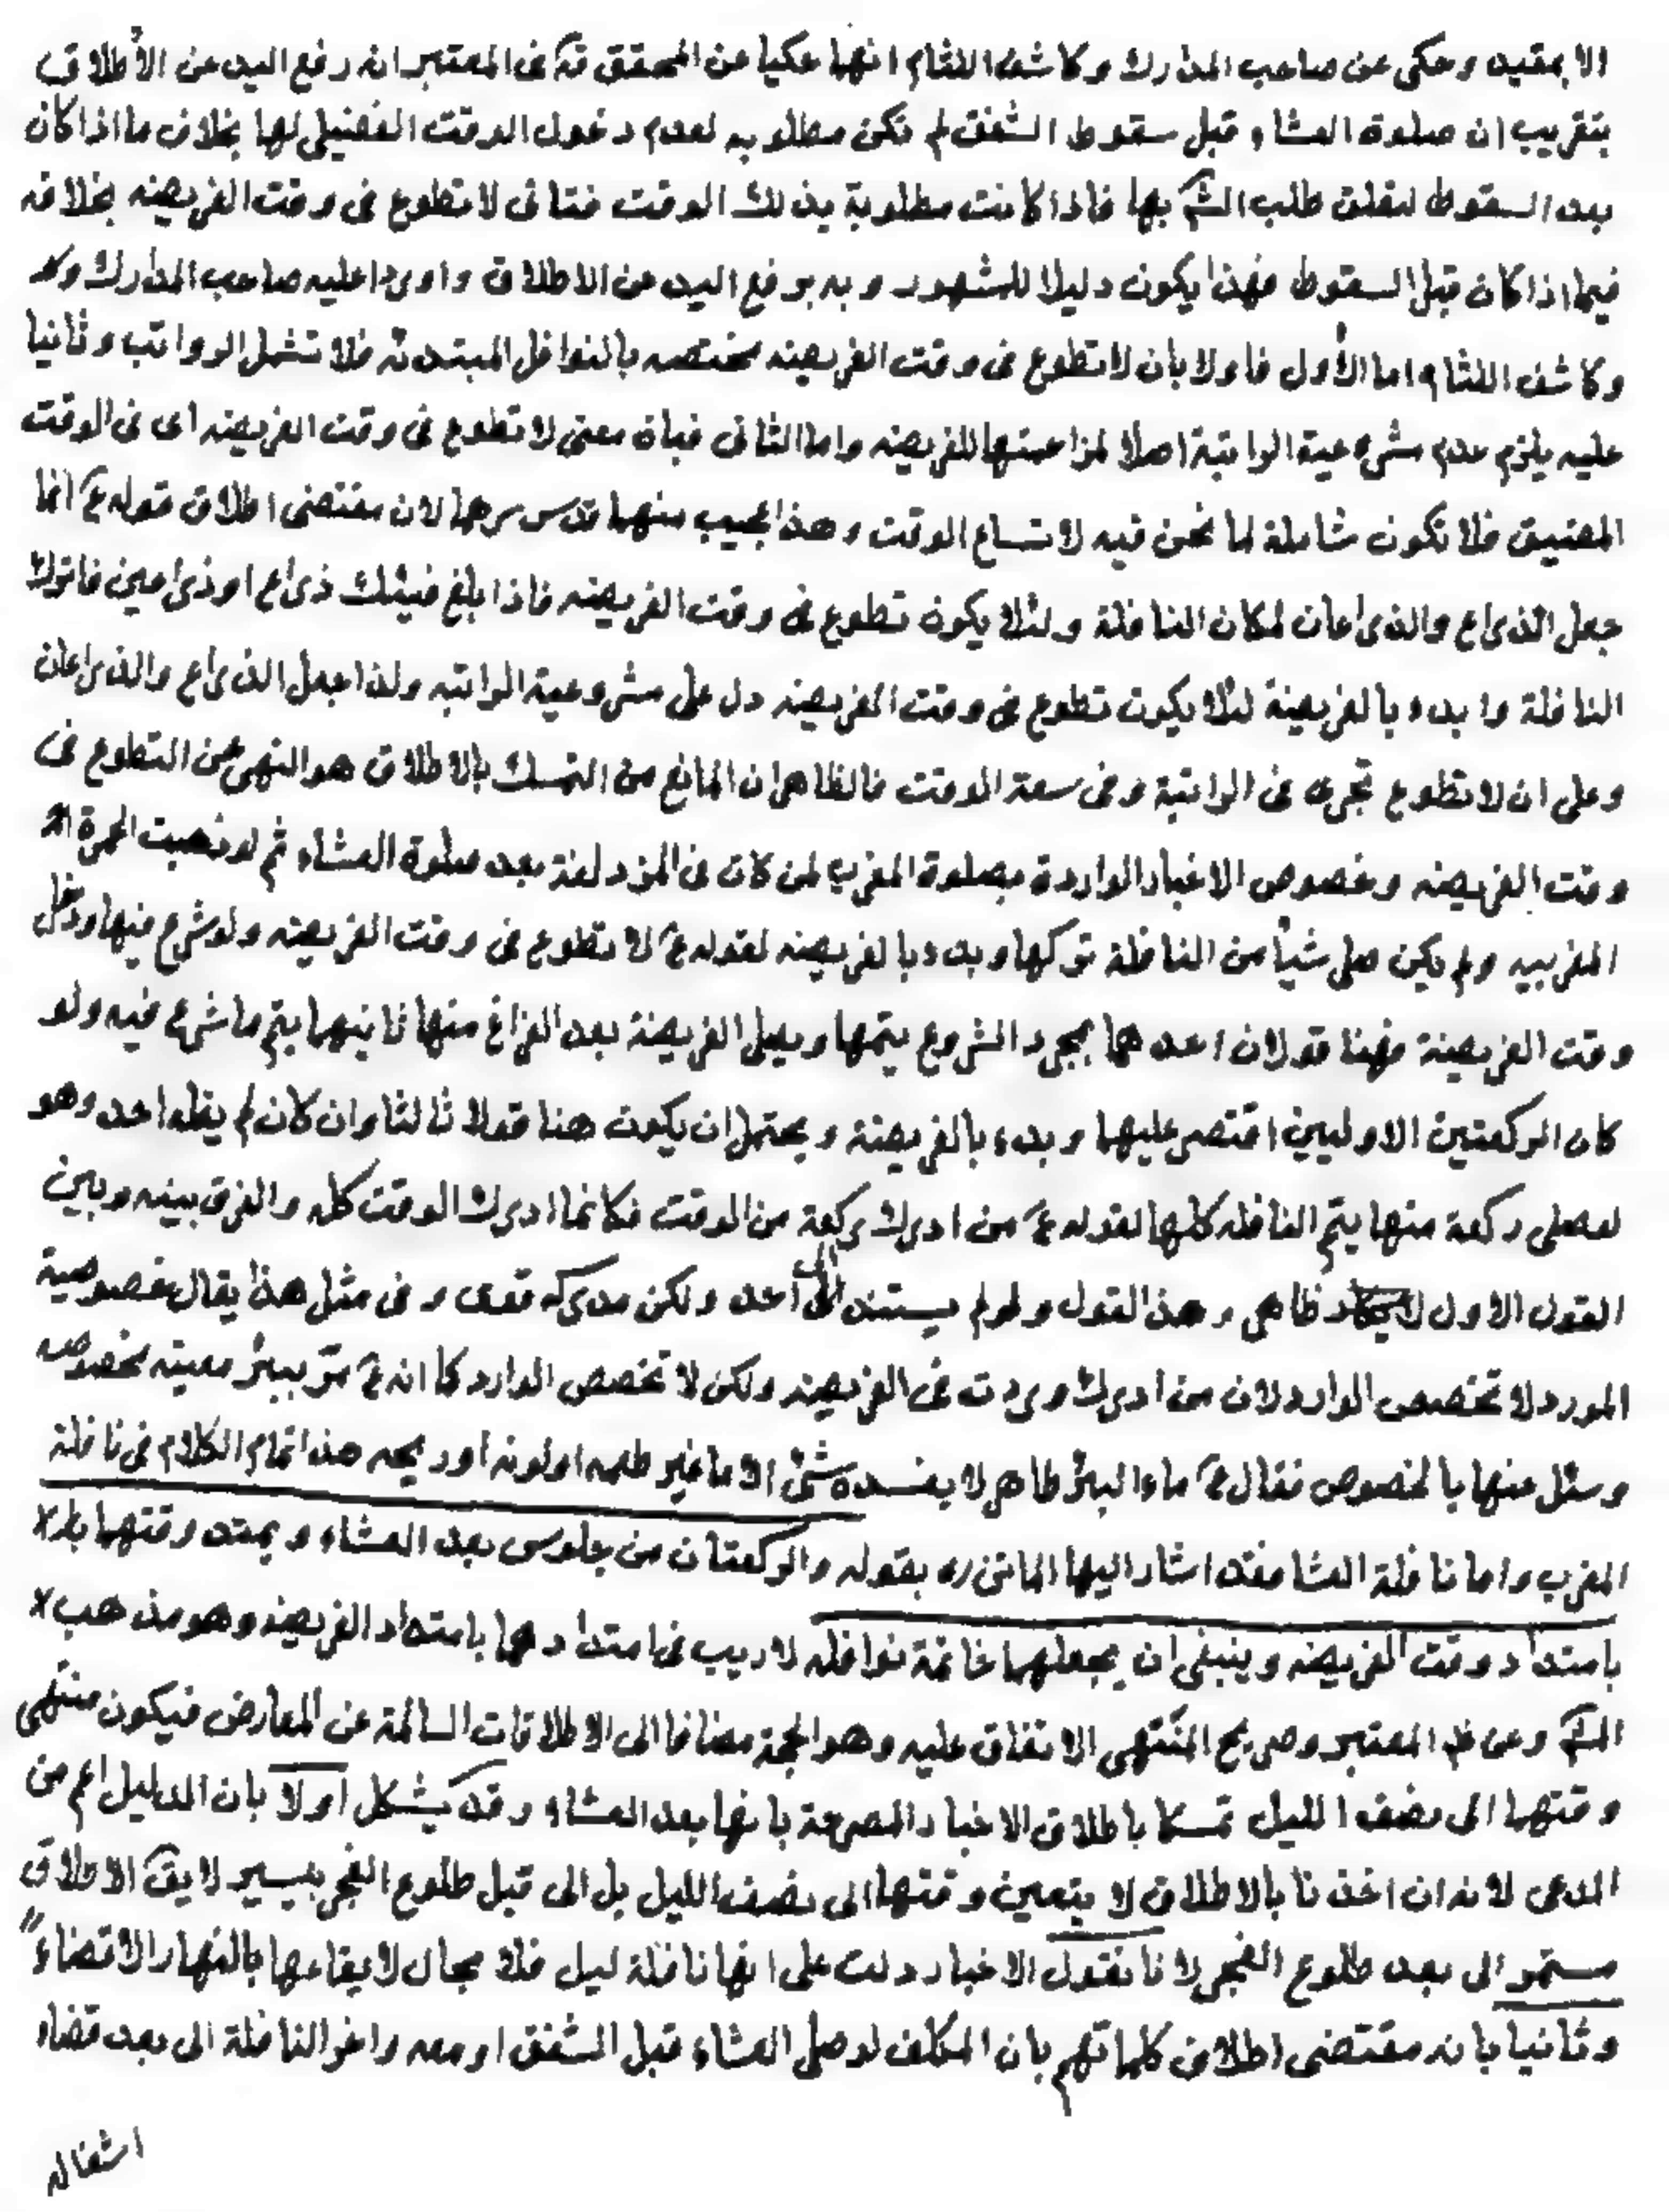 الا بمقيد وحكى عن صاحب المدارك وكاشف اللثام انهما حكيا عن المحقق قده فى المعتبر انه رفع اليد عن الأطلاق
بتقريب ان صلوة العشاء قبل سقوط الشفق لم تكن مطلوبه لعدم دخول الوقت الفضيلى لها بخلاف ما اذا كان
بعد السقوط لتعلق طلب الش بها فاذا كانت مطلوبة بذلك الوقت فتاتى لا تطوع فى وقت الفريضه بخلافه
فيما اذا كان قبل السقوط فهذا يكون دليلا للمشهور وبه يرفع اليد عن الاطلاق واورد عليه صاحب المدارك
وكاشف اللثام اما الأول فاولا بان لا تطوع فى وقت الفريضه مختصه بالنوافل المبتدئه فلا تشمل الرواتب وثانيا
عليه يلزم عدم مشروعية الراتبة اصلا لمزاحمتها للفريضه واما الثانى فبان معنى لا تطوع فى وقت الفريضه اى فى الوقت
المضيق فلا تكون شاملة لما نحن فيه لاتساع الوقت وهذا عجيب منهما قدس سرهما لان مقتضى اطلاق قوله ع انما
جعل الذراع والذراعان لمكان النافلة ولئلا يكون تطوع فى وقت الفريضه فاذا بلغ فيئك ذراع او ذراعين فاترك
النافلة وابدء بالفريضة لئلا يكون تطوع فى وقت الفريضه دل على مشروعية الراتبه ولذا جعل الذراع والذراعان
وعلى ان لا تطوع تجرى فى الراتبة وفى سعة الوقت فالظاهر ان المانع من التمسك بالاطلاق هو النهى عن التطوع فى
وقت الفريضه وخصوص الاخبار الواردة بصلوة المغرب لمن كان فى المزدلفة بعد صلوة العشاء ثم لو ذهبت الحمرة
المغربيه ولم يكن صلى شيأ من النافلة تركها وبدء بالفريضه لقوله ع لا تطوع فى وقت الفريضه ولو شرع فيها ودخل
وقت الفريضة فهنا قولان احدهما بمجرد الشروع يتمها ويصلى الفريضة بعد الفراغ منها ثانيهما يتم ما شرع فيه ولو
كان الركعتين الاوليين اقتصر عليهما وبدء بالفريضة ويحتمل ان يكون هنا قولا ثالثا وان كان لم يقله احد وهو
لو صلى ركعة منها يتم النافله كلها لقوله ع من ادرك ركعة من الوقت فكانما ادرك الوقت كله والفرق بينه وبين
القول الاول ظاهر وهذا القول ولو لم يستند الى أحد ولكن مدركه قوى وفى مثل هذا يقال خصوصية
المورد لا تخصص الوارد لان من ادرك وردت فى الفريضه ولكن لا تخصص الوارد كما انه ع مرّ ببئر معينه مخصوصه
وسئل عنها بالخصوص فقال ع ماء البئر طاهر لا يفسده شئ الا ما غير طعمه او لونه او ريحه هذا تمام الكلام فى نافلة
المغرب واما نافلة العشا فقد اشار اليها الماتن ره بقوله والركعتان من جلوس بعد العشاء ويمتد وقتهما
بامتداد وقت الفريضه وينبغى ان يجعلهما خاتمة نوافله لا ريب فى امتدادهما بامتداد الفريضه وهو مذهب
الش وعن ظ المعتبر وصريح المنتهى الاتفاق عليه وهو الحجة مضافا الى الاطلاقات السالمة عن المعارض فيكون منتهى
وقتهما الى نصف الليل تمسكا باطلاق الاخبار المصرحة بانها بعد العشاء وقد يشكل اولا بان الدليل اعم من
المدعى لانه ان اخذنا بالاطلاق لا يتعين وقتها الى نصف الليل بل الى قبل طلوع الفجر بيسير لا يق الاطلاق
مستمر الى بعد طلوع الفجر لا نا نقول الاخبار دلت على انها نافلة ليل فلا مجال لايقاعها بالنهار الا قضاء
وثانيا بانه مقتضى اطلاق كلماتهم بان المكلف لو صلى العشاء قبل الشفق او معه واخر النافلة الى بعد قضاء
اشغاله